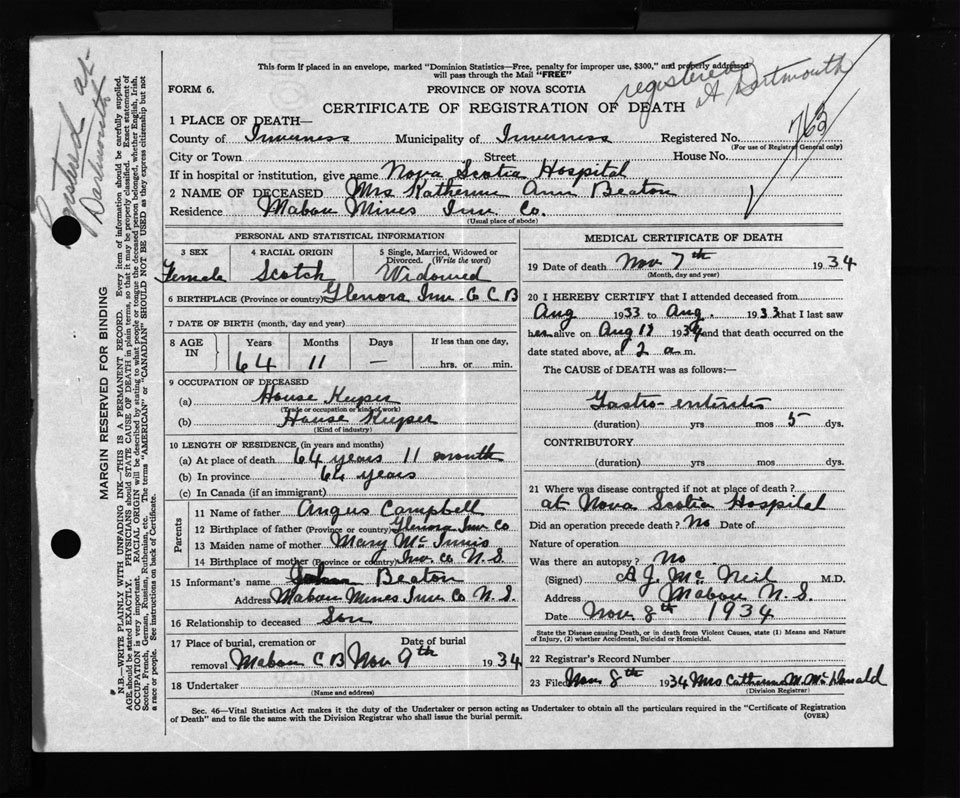 This form If placed in an envelope, marked "Dominion Statistics—Free, penalty for improper use, $300," and properly addressed
will pass through the Mail "FREE"
registered
At Dartmouth
FORM 6.
PROVINCE OF NOVA SCOTIA
CERTIFICATE OF REGISTRATION OF DEATH
1 PLACE OF DEATH—
County of Inverness Municipality of Inverness Registered No. 763
(For use of Registrar General only)
City or Town Street House No.
If in hospital or institution, give name Nova Scotia Hospital
2 NAME OF DECEASED Mrs Katherine Ann Beaton
Residence Mabou Mines Inv. Co.
(Usual place of abode)
PERSONAL AND STATISTICAL INFORMATION
3 SEX 4 RACIAL ORIGIN 5 Single, Married, Widowed or
Divorced. (Write the word)
Female Scotch Widowed
6 BIRTHPLACE (Province or country) Glenora Inv. Co C B
7 DATE OF BIRTH (month, day and year)
8 AGE IN Years Months Days If less than one day,
64 11 — hrs. or min.
9 OCCUPATION OF DECEASED
(a) House Keeper
(Trade or occupation or kind of work)
(b) House Keeper
(Kind of industry)
10 LENGTH OF RESIDENCE (in years and months)
(a) At place of death 64 years 11 month
(b) In province 64 years
(c) In Canada (if an immigrant)
Parents
11 Name of father Angus Campbell
12 Birthplace of father (Province or country) Glenora Inv Co
13 Maiden name of mother Mary Mc Innis
14 Birthplace of mother (Province or country) Inv. Co N. S.
15 Informant's name Beaton
Address Mabou Mines Inv Co N. S.
16 Relationship to deceased Son
17 Place of burial, cremation or Date of burial
removal Mabou C B Nov 9th 1934
18 Undertaker
(Name and address)
MEDICAL CERTIFICATE OF DEATH
19 Date of death Nov 7th 1934
(Month, day and year)
20 I HEREBY CERTIFY that I attended deceased from
Aug 1933 to Aug. 1933 that I last saw
her alive on Aug 1934 and that death occurred on the
date stated above, at 2 a m.
The CAUSE of DEATH was as follows:—
Gastro-enteritis
(duration) yrs mos 5 dys.
CONTRIBUTORY
(duration) yrs mos dys.
21 Where was disease contracted if not at place of death?
at Nova Scotia Hospital
Did an operation precede death? No Date of
Nature of operation
Was there an autopsy? No
(Signed) A J. Mc Neil M.D.
Address Mabou N. S.
Date Nov 8th 1934
State the Disease causing Death, or in death from Violent Causes, state (1) Means and Nature
of Injury, (2) whether Accidental, Suicidal or Homicidal.
22 Registrar's Record Number
23 Filed Nov 8th 1934 Mrs Catherine M. McDonald
(Division Registrar)
Sec. 46—Vital Statistics Act makes it the duty of the Undertaker or person acting as Undertaker to obtain all the particulars required in the "Certificate of Registration
of Death" and to file the same with the Division Registrar who shall issue the burial permit.
(OVER)
Registered at
Dartmouth
MARGIN RESERVED FOR BINDING
N.B.—WRITE PLAINLY WITH UNFADING INK—THIS IS A PERMANENT RECORD. Every item of information should be carefully supplied.
AGE should be stated EXACTLY. PHYSICIANS should STATE CAUSE OF DEATH in plain terms, so that it may be properly classified. Exact statement of
OCCUPATION is very important. RACIAL ORIGIN will be described by stating to what people or tongue the deceased person belonged, whether English, Irish,
Scotch, French, German, Russian, Ruthenian, etc. The terms "AMERICAN" or "CANADIAN" SHOULD NOT BE USED as they express citizenship but not
a race or people. See instructions on back of Certificate.